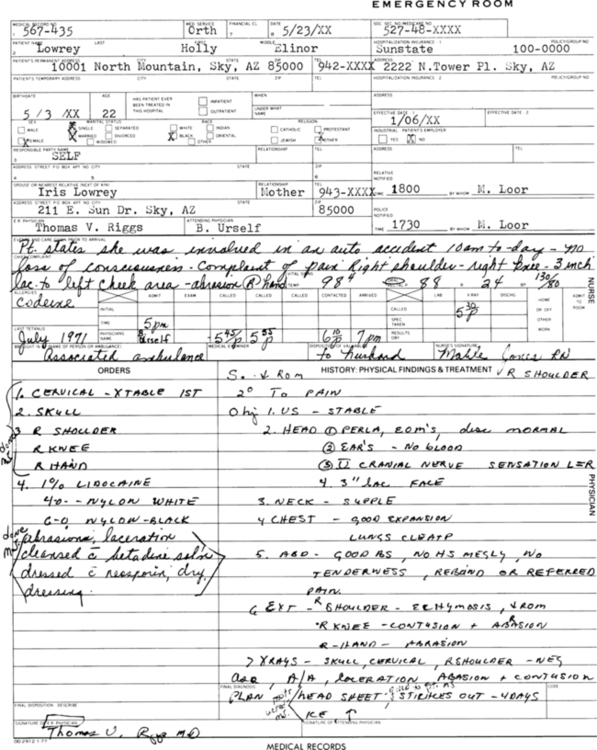 EMERGENCY ROOM
MEDICAL RECORD NO. MED SERVICE FINANCIAL CL DATE SOC. SEC. NO/MEDICARE NO
567-435 Orth 5/23/XX 527-48-XXXX
PATIENT NAME LAST FIRST MIDDLE HOSPITALIZATION INSURANCE POLICY/GROUP NO
Lowrey Holly Elinor Sunstate 100-0000
PATIENT'S PERMANENT ADDRESS CITY STATE ZIP TEL ADDRESS
10001 North Mountain, Sky, AZ 85000 942-XXXX 2222 N.Tower Pl. Sky, AZ
PATIENT'S TEMPORARY ADDRESS CITY STATE ZIP TEL HOSPITALIZATION INSURANCE POLICY/GROUP NO
BIRTHDATE AGE HAS PATIENT EVER BEEN TREATED IN THIS HOSPITAL INPATIENT OUTPATIENT WHEN UNDER WHAT NAME ADDRESS
5/3/XX 22
SEX MARITAL STATUS RACE RELIGION EFFECTIVE DATE 1 EFFECTIVE DATE 2
1/06/XX
MALE SINGLE SEPARATED WHITE INDIAN CATHOLIC PROTESTANT INDUSTRIAL PATIENT'S EMPLOYER
FEMALE MARRIED DIVORCED BLACK ORIENTAL JEWISH OTHER YES NO
WIDOWED OTHER
RESPONSIBLE PARTY NAME RELATIONSHIP TEL ADDRESS
SELF
ADDRESS STREET P.O BOX APT NO CITY STATE ZIP RELATIVE NOTIFIED
SPOUSE OR NEAREST RELATIVE (NEXT OF KIN) RELATIONSHIP TEL
Iris Lowrey Mother 943-XXXX TIME 1800 BY WHOM M. Loor
ADDRESS STREET P.O BOX APT NO CITY STATE ZIP POLICE NOTIFIED
211 E. Sun Dr. Sky, AZ 85000
E.R. PHYSICIAN ATTENDING PHYSICIAN
Thomas V. Riggs B. Urself TIME 1730 BY WHOM M. Loor
Pt. states she was involved in an auto accident 10am to-day - no
loss of consciousness - Complaint of pain Right shoulder - right knee - 3 inch
lac. to left cheek area - abrasion (R) hand TEMP 98⁴ 88 24 BP 130/80
NURSE
ALLERGIES
codeine
TIME ADMIT EXAM CALLED CALLED CONTACTED ARRIVED LAB X-RAY DISCHG HOME OR OFF OTHER WORK ADMIT TO ROOM
INITIAL CALLED
TIME 5pm SPEC TAKEN 5³⁰p
LAST TETANUS PHYSICIANS NAME RESULTS
July 1971 B. Urself 5⁴⁵p 5⁵⁵ 6¹⁰p 7pm
Associated ambulance to husband Mable Jones RN
ORDERS HISTORY: PHYSICAL FINDINGS & TREATMENT
S. ↓ ROM R SHOULDER
1. CERVICAL - XTABLE 1ST 2° TO PAIN
2. SKULL Obj 1. US - STABLE
3 R SHOULDER 2. HEAD ① PERLA, EOM'S, disc NORMAL
R KNEE ② EAR'S - NO BLOOD
R HAND ③ CRANIAL NERVE SENSATION LER
4. 1% LIDOCAINE 4. 3" lac FACE
40- - NYLON WHITE 3. NECK - SUPPLE
6-0 NYLON-BLACK 4 CHEST - GOOD EXPANSION
PHYSICIAN
done
abrasions, laceration LUNGS CLEAR
cleansed c̄ betadine sol'n 5. ABD - GOOD BS, NO HS MEGLY, NO
dressed c̄ neosporin, dry TENDERNESS, REBOUND OR REFERRED
dressing. PAIN.
6 EXT - R SHOULDER - ECHYMOSIS, ↓ ROM
R KNEE - CONTUSION + ABRASION
R-HAND - ABRASION
7 XRAYS - SKULL, CERVICAL, R SHOULDER - NEG
A/A, laceration ABRASION + CONTUSION
FINAL DIAGNOSIS CODE
PLAN HEAD SHEET STITCHES OUT - 4 DAYS
FINAL DISPOSITION DESCRIBE
ICE ↑
SIGNATURE OF E.R. PHYSICIAN SIGNATURE OF ATTENDING PHYSICIAN
Thomas V. Riggs MD
MEDICAL RECORDS